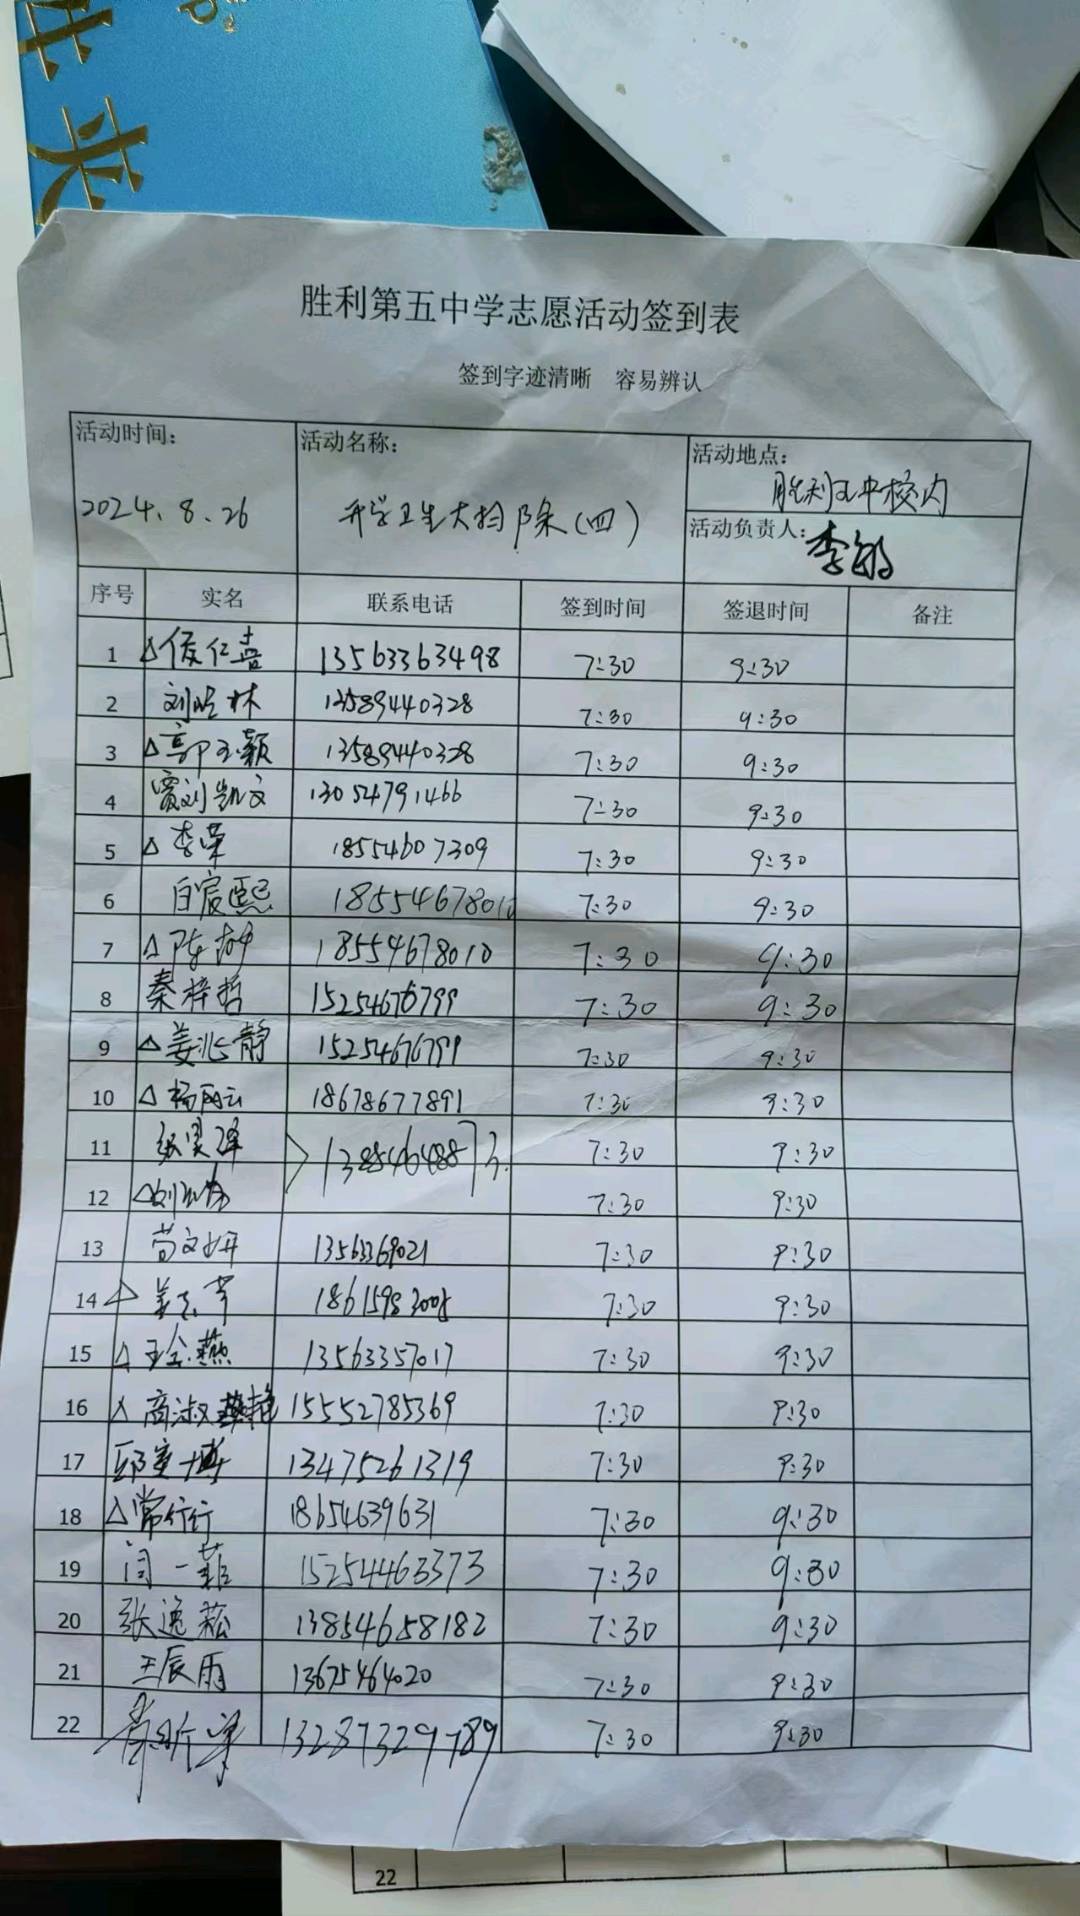 胜利第五中学志愿活动签到表
签到字迹清晰 容易辨认
活动时间: 活动名称: 活动地点:
2024.8.26 开学卫生大扫除(四) 胜利五中校内
活动负责人: 李敏
序号 实名 联系电话 签到时间 签退时间 备注
1 △侯仁喜 13563363498 7:30 9:30
2 刘皓林 13589440328 7:30 9:30
3 △郭玉颖 13589440328 7:30 9:30
4 贾刘凯文 13054791466 7:30 9:30
5 △李荣 18554607309 7:30 9:30
6 白宸熙 18554678010 7:30 9:30
7 △陈坤 18554678010 7:30 9:30
8 秦梓哲 15254676799 7:30 9:30
9 △姜兆静 15254676799 7:30 9:30
10 △杨丽云 18678677891 7:30 9:30
11 张昊泽 13854648873 7:30 9:30
12 △刘 7:30 9:30
13 苟文妍 13563369021 7:30 9:30
14 △姜 18615983005 7:30 9:30
15 △王金燕 13563357017 7:30 9:30
16 △商淑艳 15552785369 7:30 9:30
17 邱奕博 13475261319 7:30 9:30
18 △常行行 18654639631 7:30 9:30
19 闫一菲 15254463373 7:30 9:30
20 张逸菘 13854658182 7:30 9:30
21 王辰雨 13675464020 7:30 9:30
22 13287329789 7:30 9:30
22